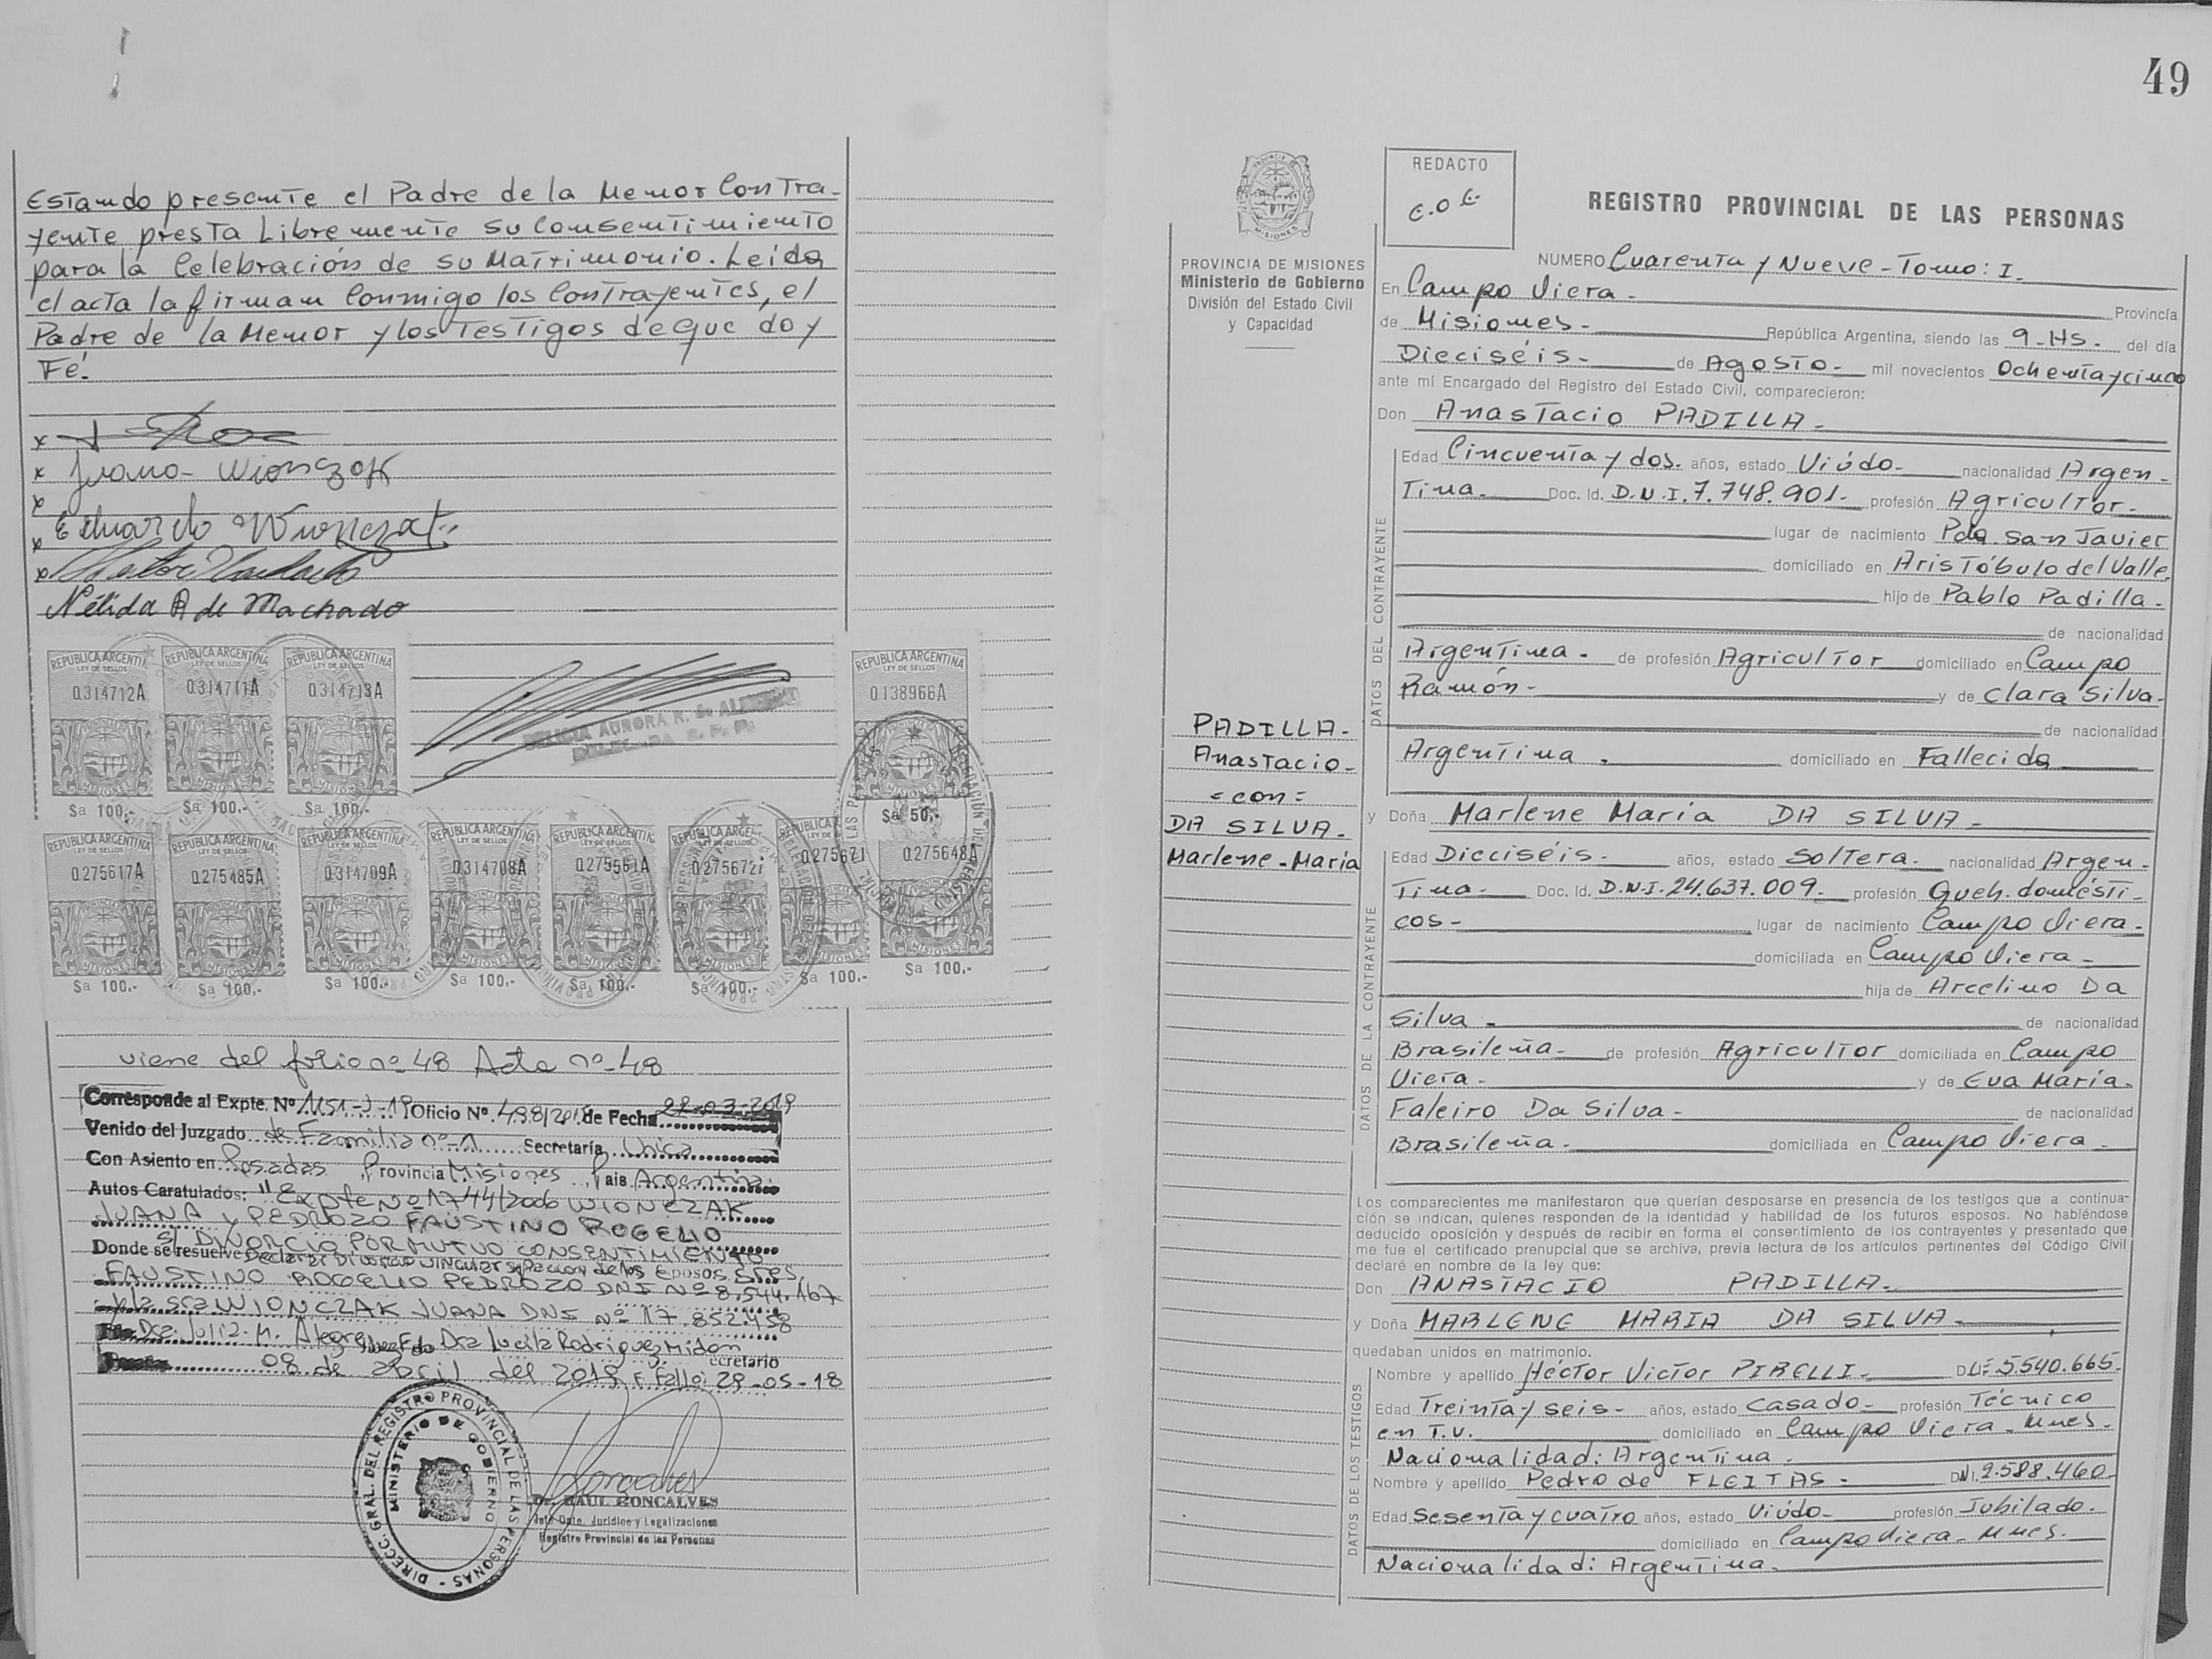 Estando presente el Padre de la Menor Contra-
yente presta Libremente su Consentimiento
para la Celebración de su Matrimonio. Leida
el acta la firman Conmigo los Contrayentes, el
Padre de la Menor y los Testigos de que doy
Fé.
x
x Juana Wionczak
x
Eduardo Wionczak
x
x
Nélida A de Machado
REPUBLICA ARGENTINA
LEY DE SELLOS
0.314712A
MISIONES
$a 100.-
REPUBLICA ARGENTINA
LEY DE SELLOS
0.314711A
$a 100.-
REPUBLICA ARGENTINA
LEY DE SELLOS
0.314713A
$a 100.-
DELICIA AURORA R. de
DELEGADA R. P. P.
REPUBLICA ARGENTINA
LEY DE SELLOS
0.138966A
$a 50.-
REPUBLICA ARGENTINA
LEY DE SELLOS
0.275617A
MISIONES
$a 100.-
REPUBLICA ARGENTINA
LEY DE SELLOS
0.275485A
MISIONES
$a 100.-
REPUBLICA ARGENTINA
LEY DE SELLOS
0.314709A
MISIONES
$a 100.-
REPUBLICA ARGENTINA
LEY DE SELLOS
0.314708A
MISIONES
$a 100.-
REPUBLICA ARGENTINA
LEY DE SELLOS
0.275561A
MISIONES
$a 100.-
REPUBLICA ARGEN
LEY DE SELLOS
0.275672
MISIONES
$a 100.-
REPUBLICA
LEY DE
0.275671
MISIONES
$a 100.-
0.275648A
MISIONES
$a 100.-
viene del folio nº 48 Acta nº 48
Corresponde al Expte. Nº 1151-J-19 Oficio Nº 488/2019 de Fecha 22-03-2019
Venido del Juzgado de Familia nº 1 Secretaría Unica
Con Asiento en Posadas Provincia Misiones Pais Argentina
Autos Caratulados: "Expte Nº 1744/2006 WIONCZAK
JUANA y PEDROZO FAUSTINO ROGELIO
S/ DIVORCIO POR MUTUO CONSENTIMIENTO
Donde se resuelve Declarar Divorcio Vincular de los Esposos Sres,
FAUSTINO ROGELIO PEDROZO DNI Nº 8.544.167
y la sra WIONCZAK JUANA DNI Nº 17.852.458
Fdo Dra. Julia M. Alegre Juez Fdo Dra Lucila Rodriguez Midon
ecretario
08 de abril del 2019 F. Fallo: 29-05-18
DIRECC. GRAL. DEL REGISTRO PROVINCIAL DE LAS PERSONAS
MINISTERIO DE GOBIERNO
Dr. RAUL GONCALVES
Jefe Dpto. Jurídico y Legalizaciones
Registro Provincial de las Personas
49
PROVINCIA DE MISIONES
Ministerio de Gobierno
División del Estado Civil
y Capacidad
PADILLA-
Anastacio-
=con=
DA SILVA.
Marlene-María
REDACTO
C.O.E.
REGISTRO PROVINCIAL DE LAS PERSONAS
NUMERO Cuarenta y Nueve-Tomo: I.
En Campo Viera- Provincia
de Misiones- República Argentina, siendo las 9-Hs. del día
Dieciséis- de Agosto- mil novecientos Ochenta y cinco
ante mí Encargado del Registro del Estado Civil, comparecieron:
Don Anastacio PADILLA-
DATOS DEL CONTRAYENTE
Edad Cincuenta y dos. años, estado Viúdo- nacionalidad Argen-
Tina- Doc. Id. D.N.I.7.748.901- profesión Agricultor-
lugar de nacimiento Pda. San Javier
domiciliado en Aristóbulo del Valle,
hijo de Pablo Padilla-
de nacionalidad
Argentina- de profesión Agricultor domiciliado en Campo
Ramón- y de Clara Silva-
de nacionalidad
Argentina. domiciliado en Fallecida
y Doña Marlene María DA SILVA-
DATOS DE LA CONTRAYENTE
Edad Dieciséis- años, estado Soltera- nacionalidad Argen-
Tina- Doc. Id. D.N.I.24.637.009- profesión Queh. domésti-
cos- lugar de nacimiento Campo Viera-
domiciliada en Campo Viera-
hija de Arcelino Da
Silva- de nacionalidad
Brasileña- de profesión Agricultor domiciliada en Campo
Viera- y de Eva María-
Faleiro Da Silva- de nacionalidad
Brasileña- domiciliada en Campo Viera-
Los comparecientes me manifestaron que querían desposarse en presencia de los testigos que a continua-
ción se indican, quienes responden de la identidad y habilidad de los futuros esposos. No habiéndose
deducido oposición y después de recibir en forma el consentimiento de los contrayentes y presentado que
me fue el certificado prenupcial que se archiva, previa lectura de los artículos pertinentes del Código Civil
declaré en nombre de la ley que:
Don ANASTACIO PADILLA-
y Doña MARLENE MARIA DA SILVA-
quedaban unidos en matrimonio.
DATOS DE LOS TESTIGOS
Nombre y apellido Héctor Victor PIRELLI- 5.540.665-
Edad Treinta y seis- años, estado Casado- profesión Técnico
en T.V. domiciliado en Campo Viera-Mnes-
Nacionalidad: Argentina-
Nombre y apellido Pedro de FLEITAS- DNI.2.588.460-
Edad Sesenta y cuatro años, estado Viúdo- profesión Jubilado-
domiciliado en Campo Viera-Mnes.
Nacionalidad: Argentina-